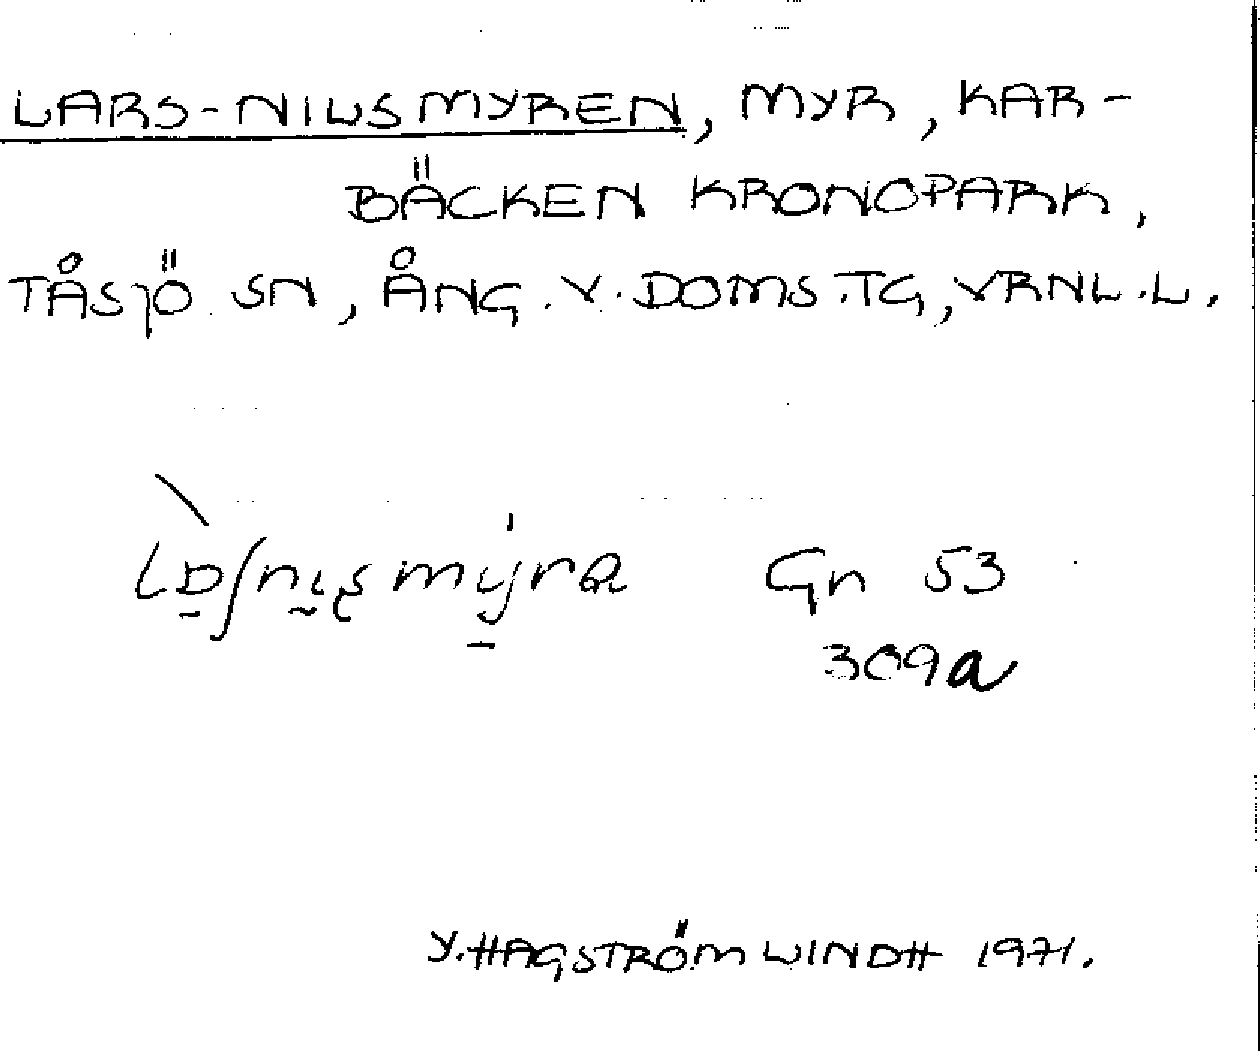 LARS-NILSMYREN, MYR, KAR-
BÄCKEN KRONOPARK,
TÅSJÖ SN, ÅNG. V. DOMS.TG, VRNL.L.
Gn 53
309a
Y. HAGSTRÖM WINDH 1971.